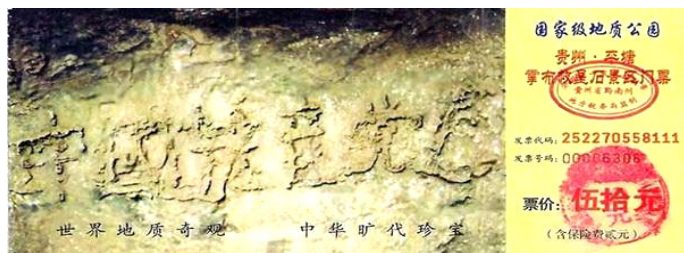 中國共产党亡
世界地质奇观 中华旷代珍宝
国家级地质公园
贵州·平塘
掌布救星石景区门票
贵州省黔南州
发票代码：252270558111
发票号码：00006306
票价：伍拾元
（含保险费贰元）